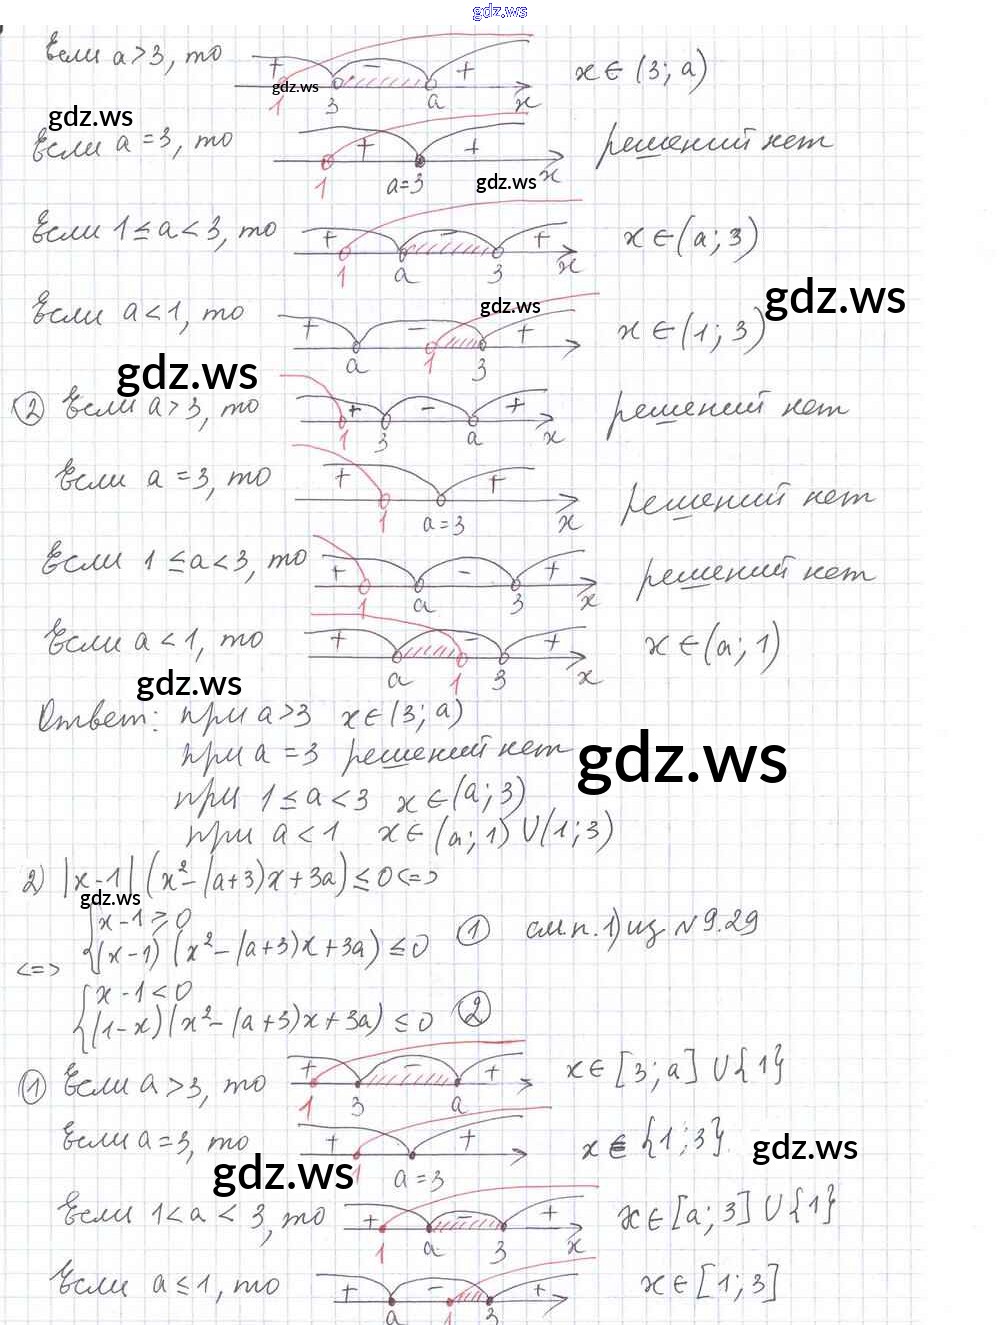 gdz.ws
Если a>3, то + − + 1 3 a x x ∈ (3; a)
gdz.ws
gdz.ws
Если a=3, то + + 1 a=3 x решений нет
gdz.ws
Если 1≤a<3, то + − + 1 a 3 x x ∈ (a; 3)
gdz.ws
gdz.ws
Если a<1, то + − + a 1 3 x ∈ (1; 3)
gdz.ws
② Если a>3, то + − + 1 3 a x решений нет
Если a=3, то + + 1 a=3 x решений нет
Если 1≤a<3, то + − + 1 a 3 x решений нет
Если a<1, то + − + a 1 3 x x ∈ (a; 1)
gdz.ws
Ответ: при a>3 x∈(3; a)
при a=3 решений нет
gdz.ws
при 1≤a<3 x∈(a; 3)
при a<1 x∈(a; 1)∪(1; 3)
2) |x-1|(x²-(a+3)x+3a)≤0 <=>
gdz.ws
<=> {x-1≥0
{(x-1)(x²-(a+3)x+3a)≤0 ① см.п.1) из №9.29
{x-1<0
{(1-x)(x²-(a+3)x+3a)≤0 ②
① Если a>3, то + − + 1 3 a x∈[3; a]∪{1}
Если a=3, то + + 1 a=3 x∈{1; 3}.
gdz.ws
gdz.ws
Если 1<a<3, то + − + 1 a 3 x x∈[a; 3]∪{1}
Если a≤1, то + − + a 1 3 x∈[1; 3]